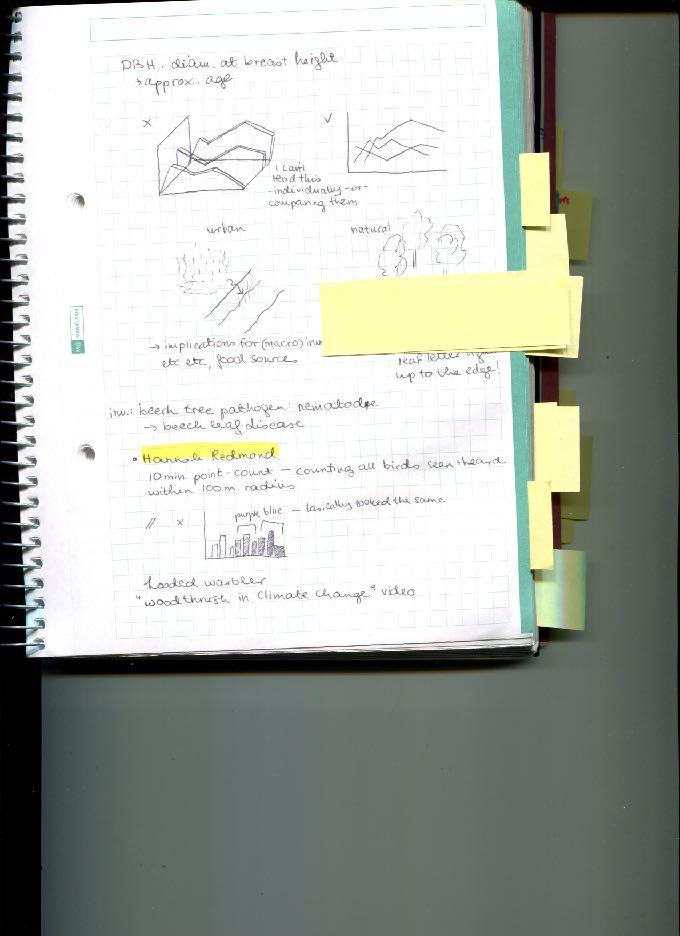 DBH. diam. at breast height
→ approx. age
x
v
I can't
read this
-individually-or-
comparing them
urban
natural
→ implications for (macro) inv
etc etc, food source
leaf litter right
up to the edge!
inv.: beech tree pathogen: nematode
→ beech leaf disease
• Hannah Redmond
10min point-count – counting all birds seen+heard
within 100m radius
// x
purple blue – basically looked the same
hooded warbler
"wood thrush in climate change" video